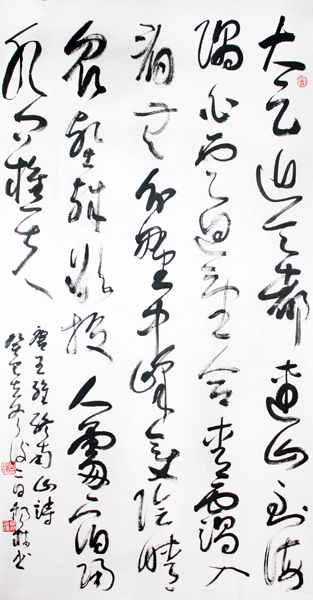 太乙近天都連山到海
隅白雲迴望合青靄入
看無分野中峰變陰晴
衆壑殊欲投人處宿隔
水問樵夫
唐王維終南山詩
癸巳